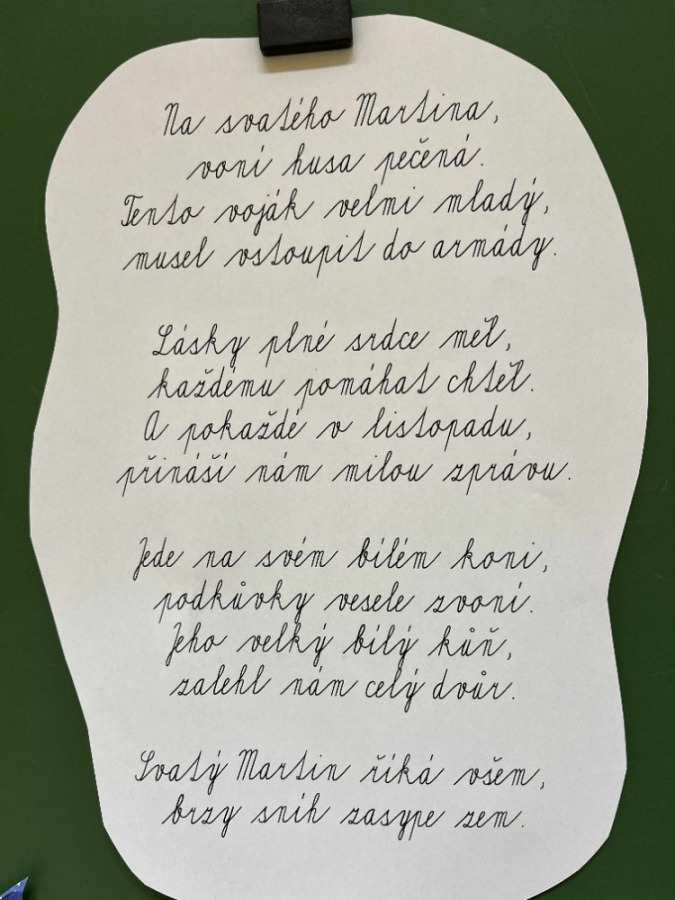 Na svatého Martina,
voní husa pečená.
Tento voják velmi mladý,
musel vstoupit do armády.
Lásky plné srdce měl,
každému pomáhat chtěl.
A pokaždé v listopadu,
přináší nám milou zprávu.
Jede na svém bílém koni,
podkůvky vesele zvoní.
Jeho velký bílý kůň,
zalehl nám celý dvůr.
Svatý Martin říká všem,
brzy sníh zasype zem.